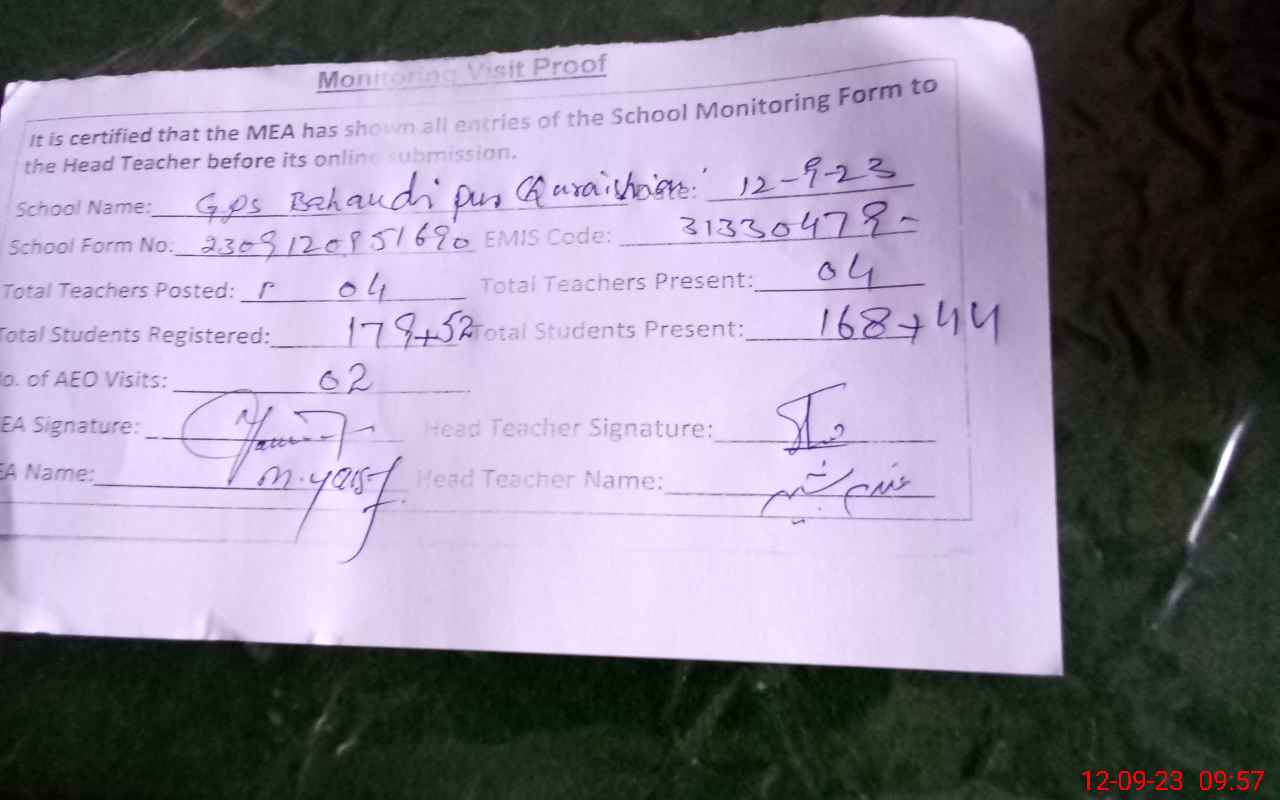 Monitoring Visit Proof
It is certified that the MEA has shown all entries of the School Monitoring Form to
the Head Teacher before its online submission.
School Name: GPS Bahaudi pur Quraishan Date: 12-9-23
School Form No: EMIS Code: 31330479
Total Teachers Posted: 04 Total Teachers Present: 04
Total Students Registered: 179+52 Total Students Present: 168+44
No. of AEO Visits: 02
EA Signature: Head Teacher Signature:
EA Name: M. Head Teacher Name:
12-09-23 09:57